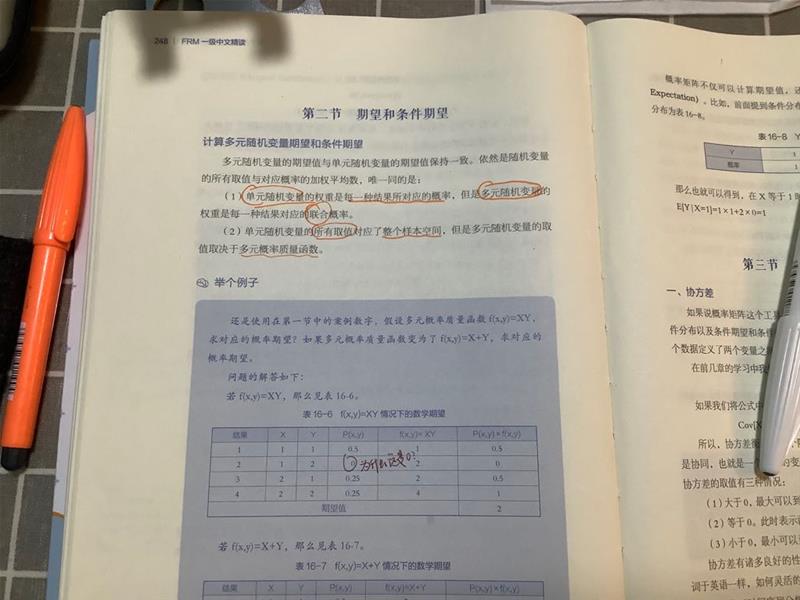 248 | FRM 一级中文精读
第二节 期望和条件期望
计算多元随机变量期望和条件期望
多元随机变量的期望值与单元随机变量的期望值保持一致。依然是随机变量
的所有取值与对应概率的加权平均数，唯一同的是：
（1）单元随机变量的权重是每一种结果所对应的概率，但是多元随机变量的
权重是每一种结果对应的联合概率。
（2）单元随机变量的所有取值对应了整个样本空间，但是多元随机变量的取
值取决于多元概率质量函数。
举个例子
还是使用在第一节中的案例数字，假设多元概率质量函数 f(x,y)=XY，
求对应的概率期望？如果多元概率质量函数变为了 f(x,y)=X+Y，求对应的
概率期望。
问题的解答如下：
若 f(x,y)=XY，那么见表 16-6。
表 16-6 f(x,y)=XY 情况下的数学期望
结果 X Y P(x,y) f(x,y)= XY P(x,y)×f(x,y)
1 1 1 0.5 1 0.5
2 1 2 0 为什么这是0? 2 0
3 2 1 0.25 2 0.5
4 2 2 0.25 4 1
期望值 2
若 f(x,y)=X+Y，那么见表 16-7。
表 16-7 f(x,y)=X+Y 情况下的数学期望
结果 X Y P(x,y) f(x,y)=X+Y P(x,y)×f(x,y)
概率矩阵不仅可以计算期望值，还
Expectation）。比如，前面提到条件分布
分布为表16-8。
表 16-8 Y
Y 1
概率 1
那么也就可以得到，在 X 等于 1 时
E[Y|X=1]=1×1+2×0=1
第三节
一、协方差
如果说概率矩阵这个工具
件分布以及条件期望和条件
个数据定义了两个变量之
在前几章的学习中我
如果我们将公式中
Cov[X
所以，协方差衡
是协同，也就是一个
协方差的取值有三种情况：
（1）大于0，最大可以到
（2）等于0。此时表示
（3）小于0，最小可以
协方差有诸多良好的性
词于英语一样，如何灵活的